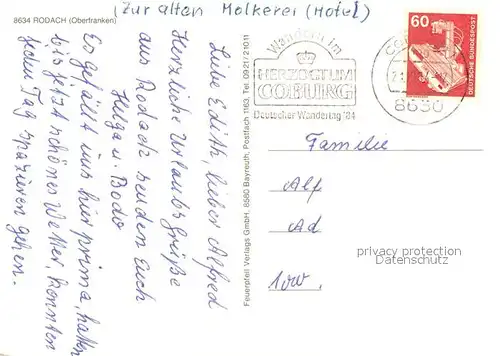 8634 RODACH (Oberfranken)
(Zur alten Molkerei (Hotel)
Liebe Edith, lieber Alfred
Herzliche Urlaubsgrüße
aus Rodach senden Euch
Helga u. Bodo
Es gefällt uns hier prima, hatten
bis jetzt schönes Wetter, konnten
jeden Tag spazieren gehen.
Feuerpfeil Verlags GmbH, 8580 Bayreuth, Postfach 1163, Tel. 0921/21011
Wandern im
HERZOGTUM
COBURG
Deutscher Wandertag '84
8630
60
DEUTSCHE BUNDESPOST
Familie
Alf
Ad
privacy protection
Datenschutz